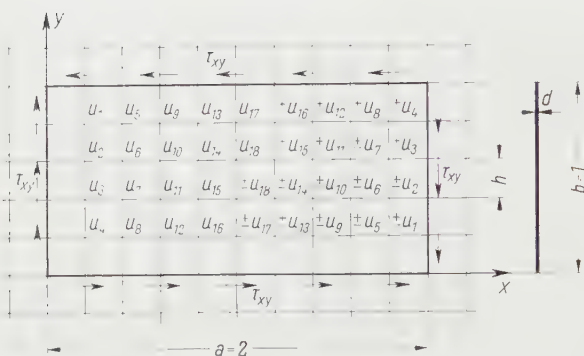 y
τxy
u₅ u₉ u₁₃ u₁₇ ±u₁₆ ±u₁₂ ±u₈ ±u₄
u₂ u₆ u₁₀ u₁₄ u₁₈ ±u₁₅ ±u₁₁ ±u₇ ±u₃
τxy u₃ u₁₁ u₁₅ ±u₁₈ ±u₁₄ ±u₁₀ ±u₆ ±u₂ τxy
u₄ u₈ u₁₂ u₁₆ ±u₁₇ ±u₁₃ ±u₉ ±u₅ ±u₁
τxy
x
a=2
d
h
b=1